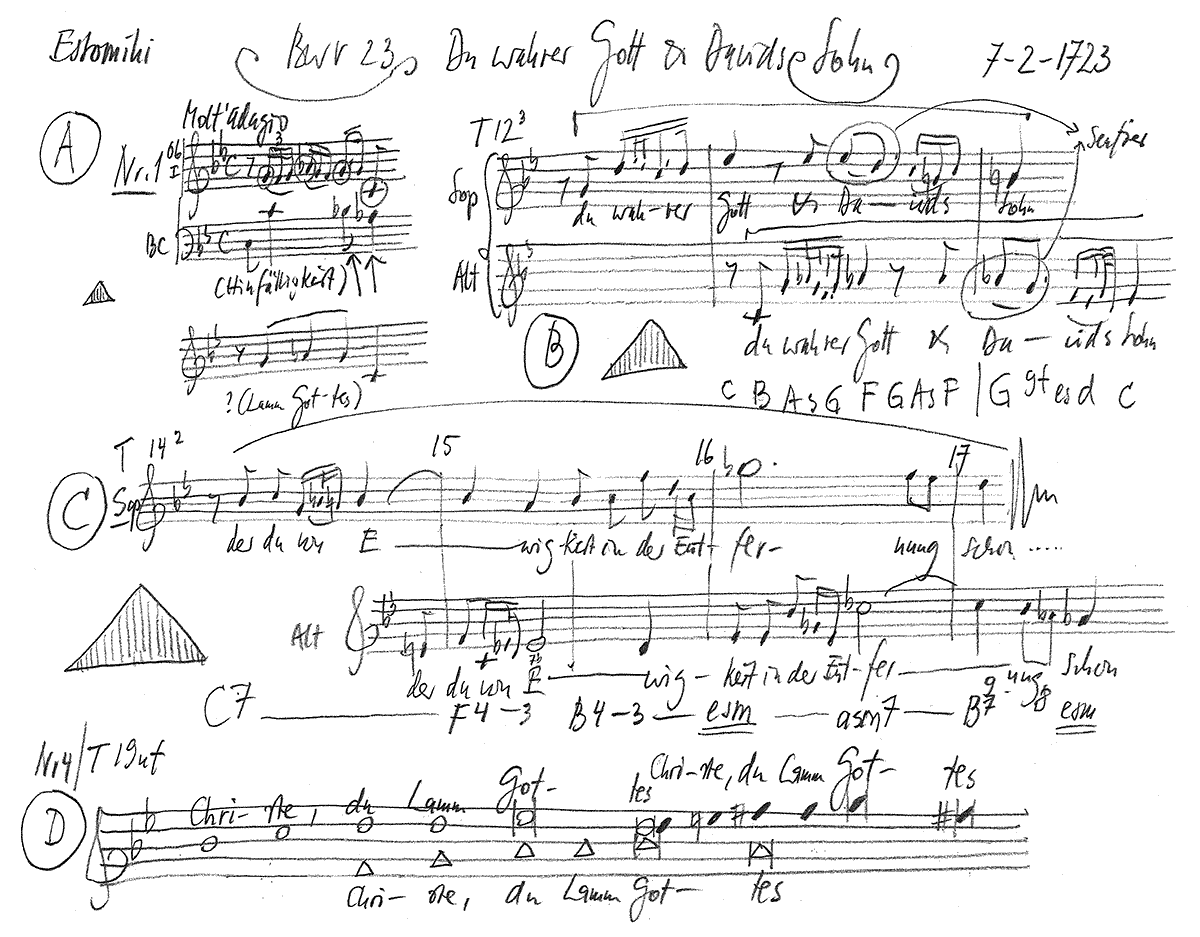 Estomihi BWV 23 Du wahrer Gott & Davids Sohn 7-2-1723
A Nr. 1 Molt'adagio
Ob I
3
BC
(Hinfälligkeit)
? (Lamm Got-tes)
T 12³
Seufzer
Sop
du wah-rer Gott & Da-vids Sohn
Alt
du wahrer Gott & Da-vids Sohn
B
C B As G F G As F | G gt es d C
T 14² 15 16 17
C Sop
der du von E - wig-keit in der Ent-fer- nung schon .....
Alt
der du von E - wig-keit in der Ent-fer- nung schon
C7 F4-3 B4-3 esm asm7 B 9 7 8 esm
Nr 4/T 19uf
D
Chri-ste, du Lamm Got- tes Chri-ste, du Lamm Got- tes
Chri-ste, du Lamm Got- tes